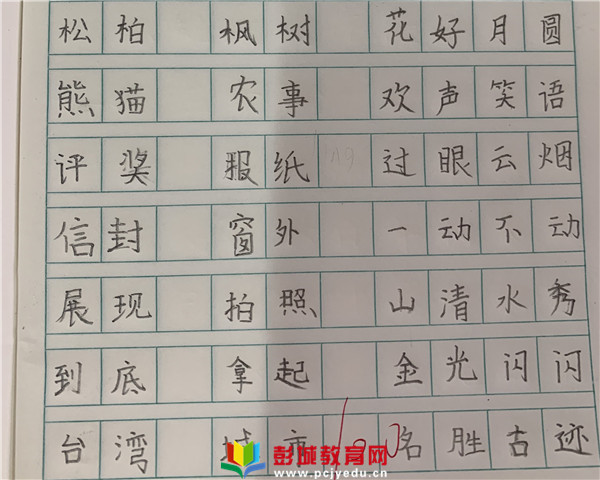 松柏 枫树 花好月圆
熊猫 农事 欢声笑语
评奖 服纸 过眼云烟
信封 窗外 一动不动
展现 拍照 山清水秀
到底 拿起 金光闪闪
台湾 城市 100 名胜古迹
彭城教育网
www.pcjyedu.cn